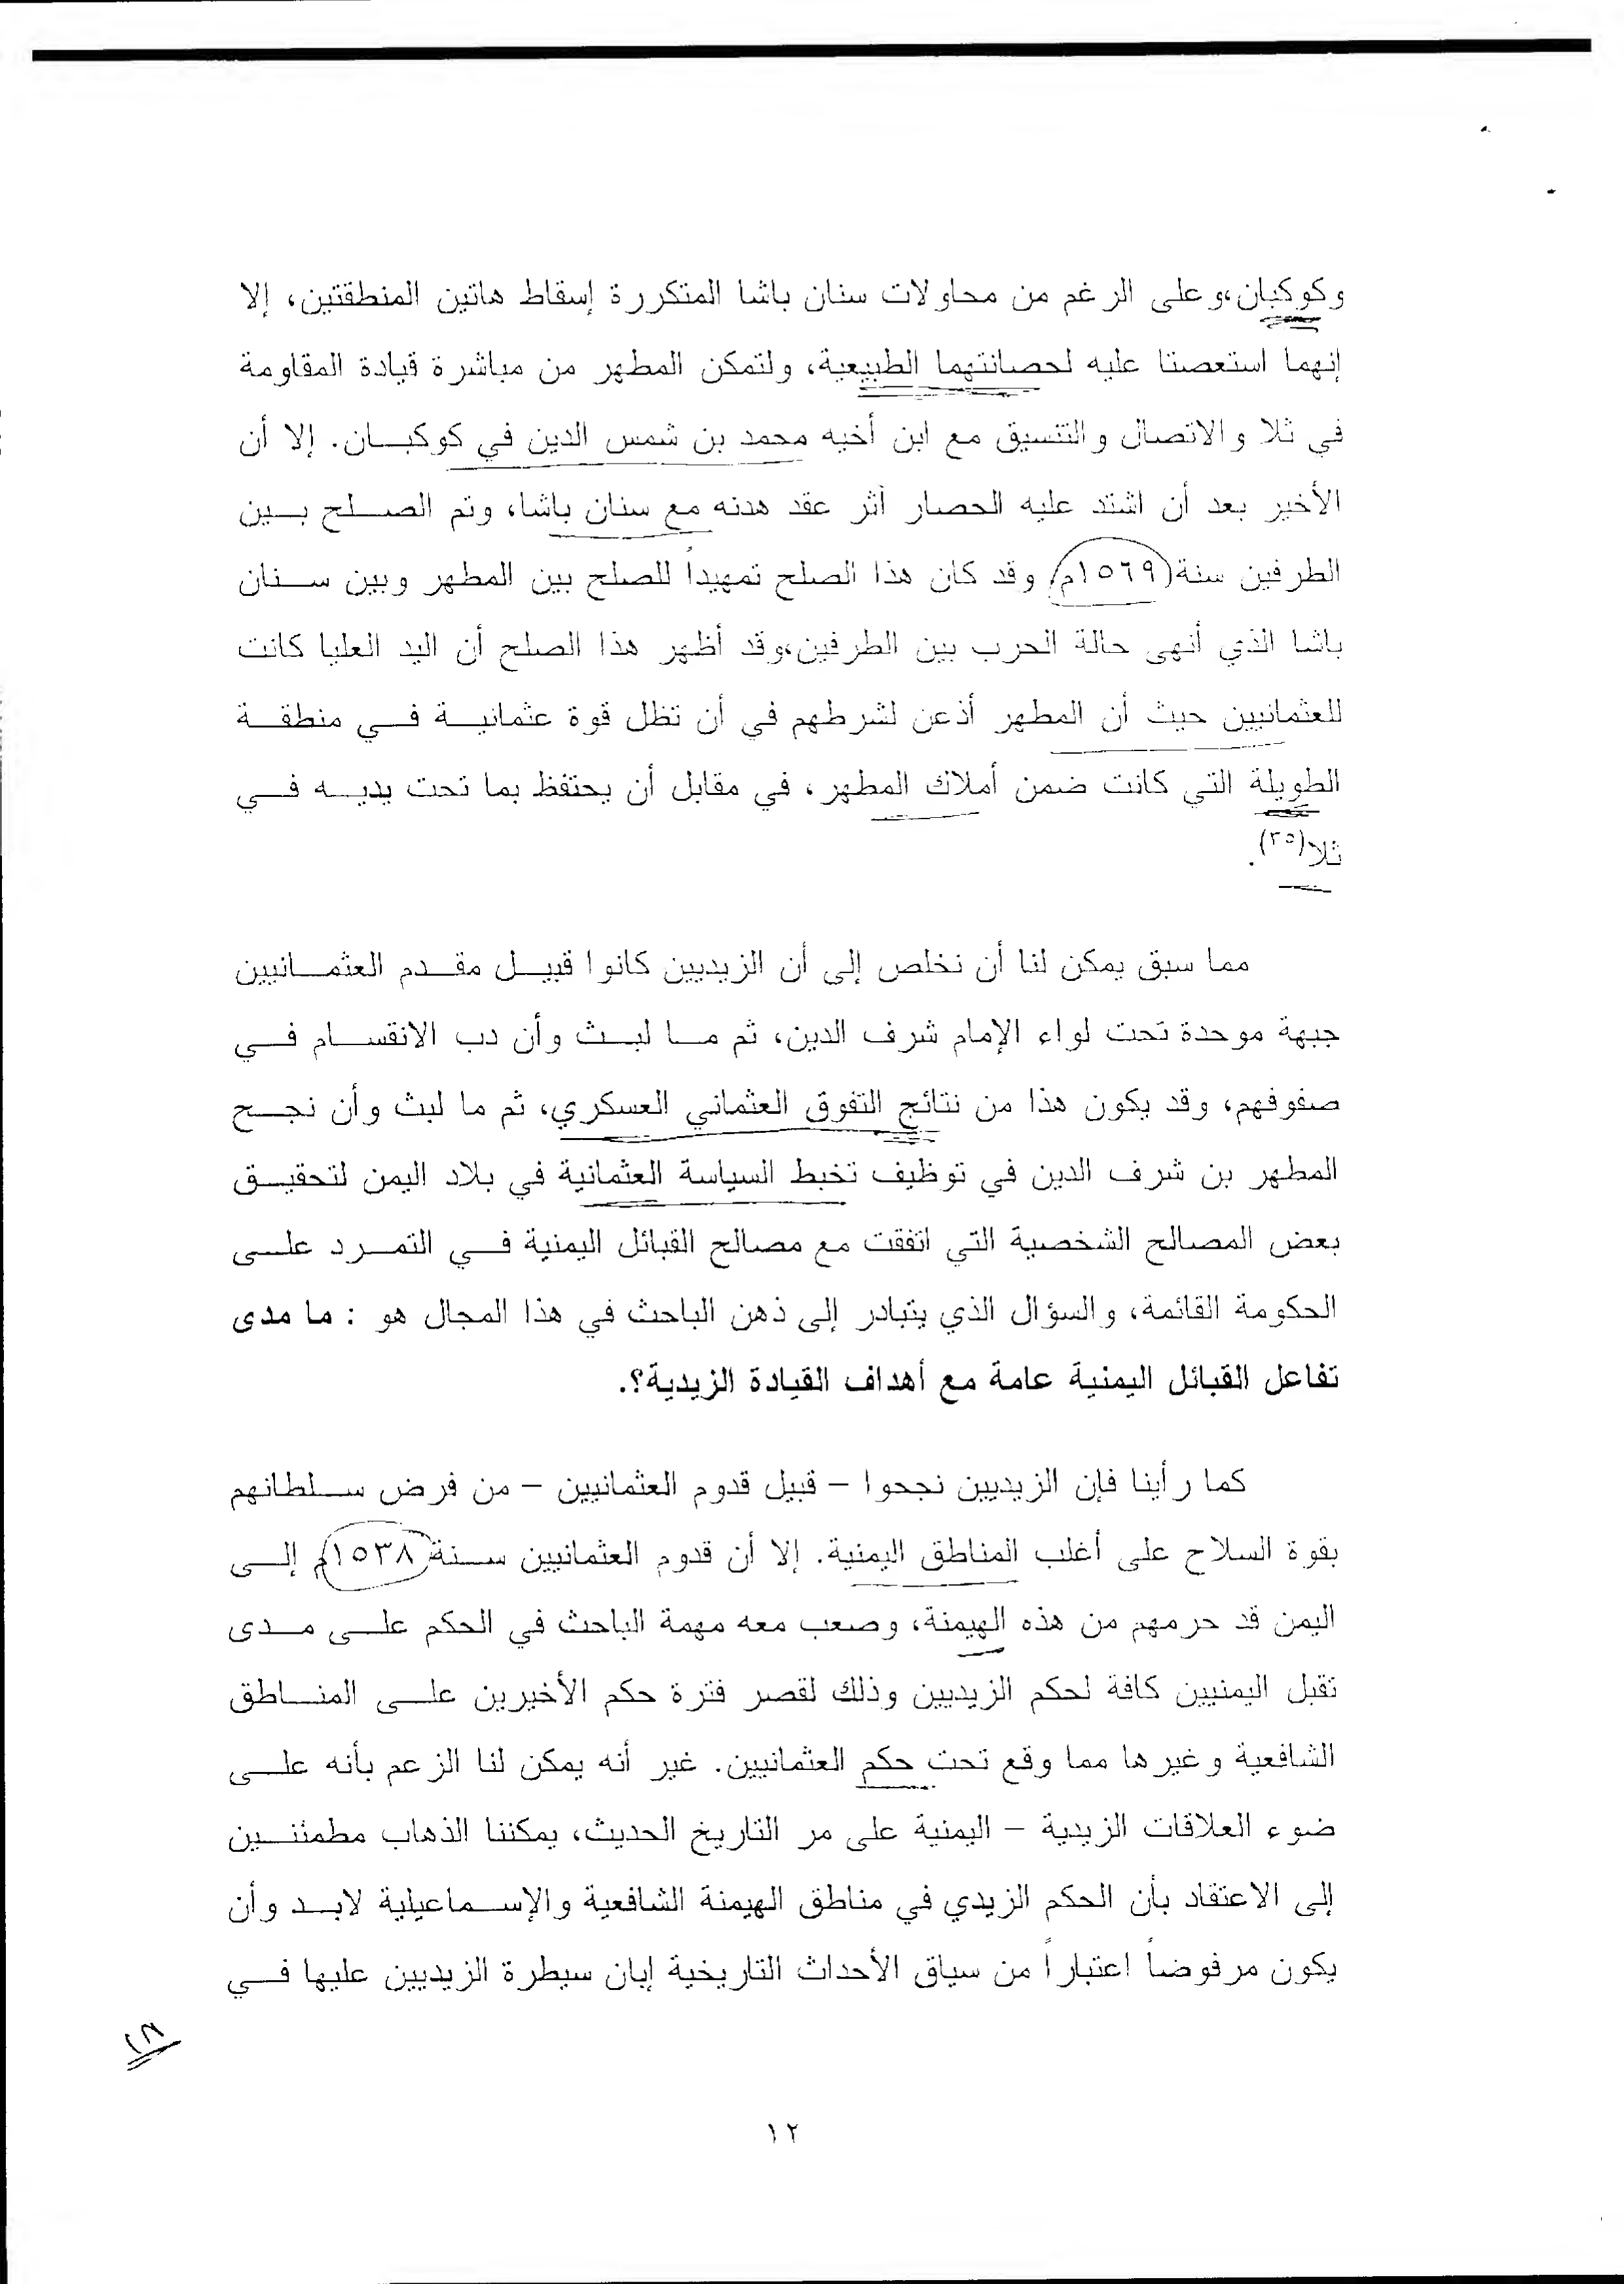 وكوكبان،وعلى الرغم من محاولات سنان باشا المتكررة إسقاط هاتين المنطقتين، إلا
إنهما استعصتا عليه لحصانتهما الطبيعية، ولتمكن المطهر من مباشرة قيادة المقاومة
في ثلا والاتصال والتنسيق مع ابن أخيه محمد بن شمس الدين في كوكبان. إلا أن
الأخير بعد أن اشتد عليه الحصار آثر عقد هدنه مع سنان باشا، وتم الصلح بين
الطرفين سنة (١٥٦٩م) وقد كان هذا الصلح تمهيداً للصلح بين المطهر وبين سنان
باشا الذي أنهى حالة الحرب بين الطرفين،وقد أظهر هذا الصلح أن اليد العليا كانت
للعثمانيين حيث أن المطهر أذعن لشرطهم في أن تظل قوة عثمانية في منطقة
الطويلة التي كانت ضمن أملاك المطهر، في مقابل أن يحتفظ بما تحت يديه في
ثلا(٢٥).
مما سبق يمكن لنا أن نخلص إلى أن الزيديين كانوا قبيل مقدم العثمانيين
جبهة موحدة تحت لواء الإمام شرف الدين، ثم ما لبث وأن دب الانقسام في
صفوفهم، وقد يكون هذا من نتائج التفوق العثماني العسكري، ثم ما لبث وأن نجح
المطهر بن شرف الدين في توظيف تخبط السياسة العثمانية في بلاد اليمن لتحقيق
بعض المصالح الشخصية التي اتفقت مع مصالح القبائل اليمنية في التمرد على
الحكومة القائمة، والسؤال الذي يتبادر إلى ذهن الباحث في هذا المجال هو : ما مدى
تفاعل القبائل اليمنية عامة مع أهداف القيادة الزيدية؟.
كما رأينا فإن الزيديين نجحوا – قبيل قدوم العثمانيين – من فرض سلطانهم
بقوة السلاح على أغلب المناطق اليمنية. إلا أن قدوم العثمانيين سنة (١٥٣٨م) إلى
اليمن قد حرمهم من هذه الهيمنة، وصعب معه مهمة الباحث في الحكم على مدى
تقبل اليمنيين كافة لحكم الزيديين وذلك لقصر فترة حكم الأخيرين على المناطق
الشافعية وغيرها مما وقع تحت حكم العثمانيين. غير أنه يمكن لنا الزعم بأنه على
ضوء العلاقات الزيدية – اليمنية على مر التاريخ الحديث، يمكننا الذهاب مطمئنين
إلى الاعتقاد بأن الحكم الزيدي في مناطق الهيمنة الشافعية والإسماعيلية لابد وأن
يكون مرفوضاً اعتباراً من سياق الأحداث التاريخية إبان سيطرة الزيديين عليها في
١٢